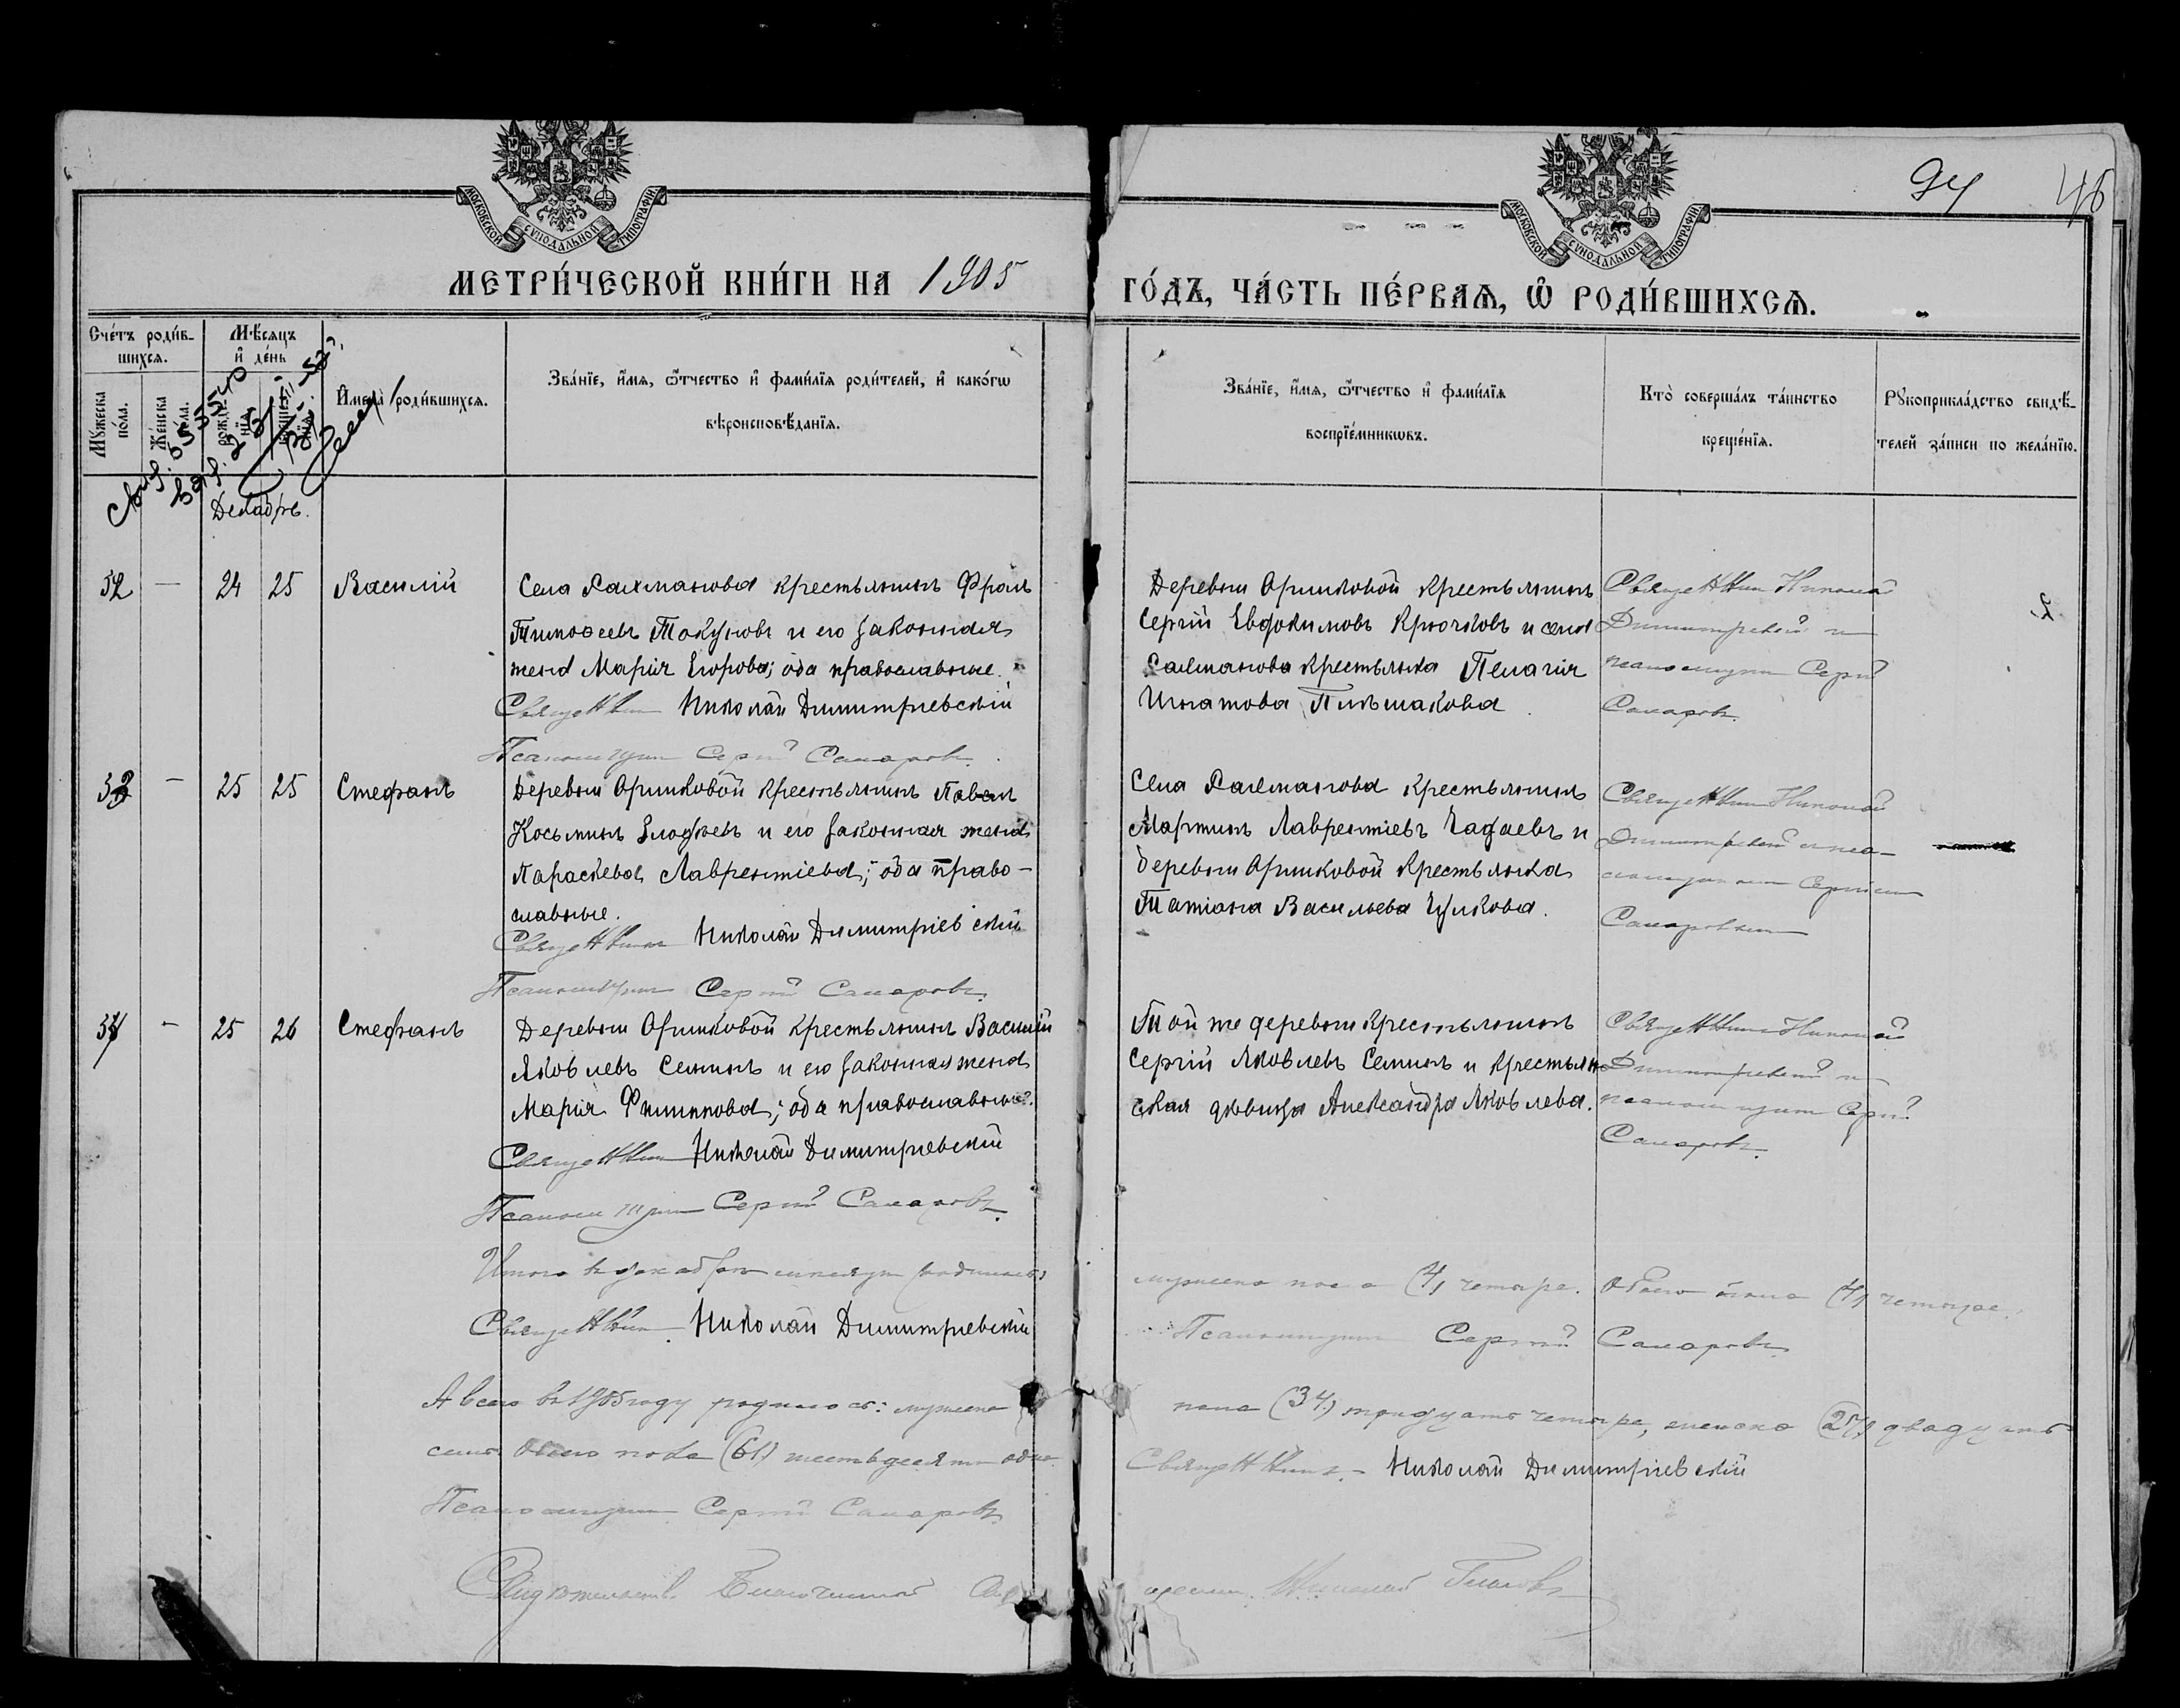 МОСКОВСКОЙ СѴНОДАЛЬНОЙ ТИПОГРАФІИ
МОСКОВСКОЙ СѴНОДАЛЬНОЙ ТИПОГРАФІИ
94 46
МЕТРИ́ЧЕСКОЙ КНИ́ГИ НА 1905
ГО́ДЪ, ЧА́СТЬ ПЕ́РВАѦ, Ѡ РОДИ́ВШИХСѦ.
Сче́тъ роди́в-
шихсѧ.
Мѣ́сѧцъ
и҆ де́нь
Мꙋ́жеска
по́ла.
Же́нска
по́ла.
рожде́-
нїѧ.
Имена̀ роди́вшихсѧ.
Зва́нїе, и҆́мѧ, ѻ҆́тчество и҆ фами́лїѧ роди́телей, и҆ како́гѡ
вѣроисповѣ́данїѧ.
Зва́нїе, и҆́мѧ, ѻ҆́тчество и҆ фами́лїѧ
воспрїе́мникѡвъ.
Кто̀ соверша́лъ та́инство
креще́нїѧ.
Рꙋкоприкла́дство свидѣ́-
телей за́писи по жела́нїю.
Декабрь.
32 — 24 25 Василій
Села Рахманова крестьянинъ Фролъ
Тимофеевъ Токуновъ и его законная
жена Марія Егорова; оба православные.
Священникъ Николай Димитріевскій
Псаломщикъ Сергій Самаровъ.
Деревни Оринковой крестьянинъ
Сергій Евдокимовъ Крючковъ и села
Рахманова крестьянка Пелагія
Игнатова
Священникъ Николай
Димитревскій и
псаломщикъ Сергій
Самаровъ.
33 — 25 25 Стефанъ
Деревни Оринковой крестьянинъ Павелъ
Косьминъ и его законная жена
Параскева Лаврентіева; оба право-
славные.
Священникъ Николай Димитріевскій
Псаломщикъ Сергій Самаровъ.
Села Рахманова крестьянинъ
Мартинъ Лаврентіевъ Чадаевъ и
деревни Оринковой крестьянка
Татіана Васильева Чулкова.
Священникъ Николай
Димитревскій и пса-
ломщикомъ Сергіемъ
Самаровымъ
34 — 25 26 Стефанъ
Деревни Оринковой крестьянинъ Василій
Яковлевъ Семинъ и его законная жена
Марія Филиппова; оба православные.
Священникъ Николай Димитріевскій
Псаломщикъ Сергій Самаровъ.
Той же деревни крестьянинъ
Сергій Яковлевъ Семинъ и крестьян-
ская дѣвица Александра Яковлева.
Священникъ Николай
Димитревскій и
псаломщикъ Сергій
Самаровъ.
Итого въ декабрѣ мѣсяцѣ родилось:
мужеска пола (4) четыре. Обоего пола (4) четыре.
Священникъ Николай Димитріевскій
Псаломщикъ Сергій Самаровъ.
А всего въ 1905 году родилось: мужеска
пола (34) тридцать четыре, женска (27) двадцать
семь. Обоего пола (61) шестьдесятъ одинъ.
Священникъ. – Николай Димитріевскій
Псаломщикъ Сергій Самаровъ.
Благочинный